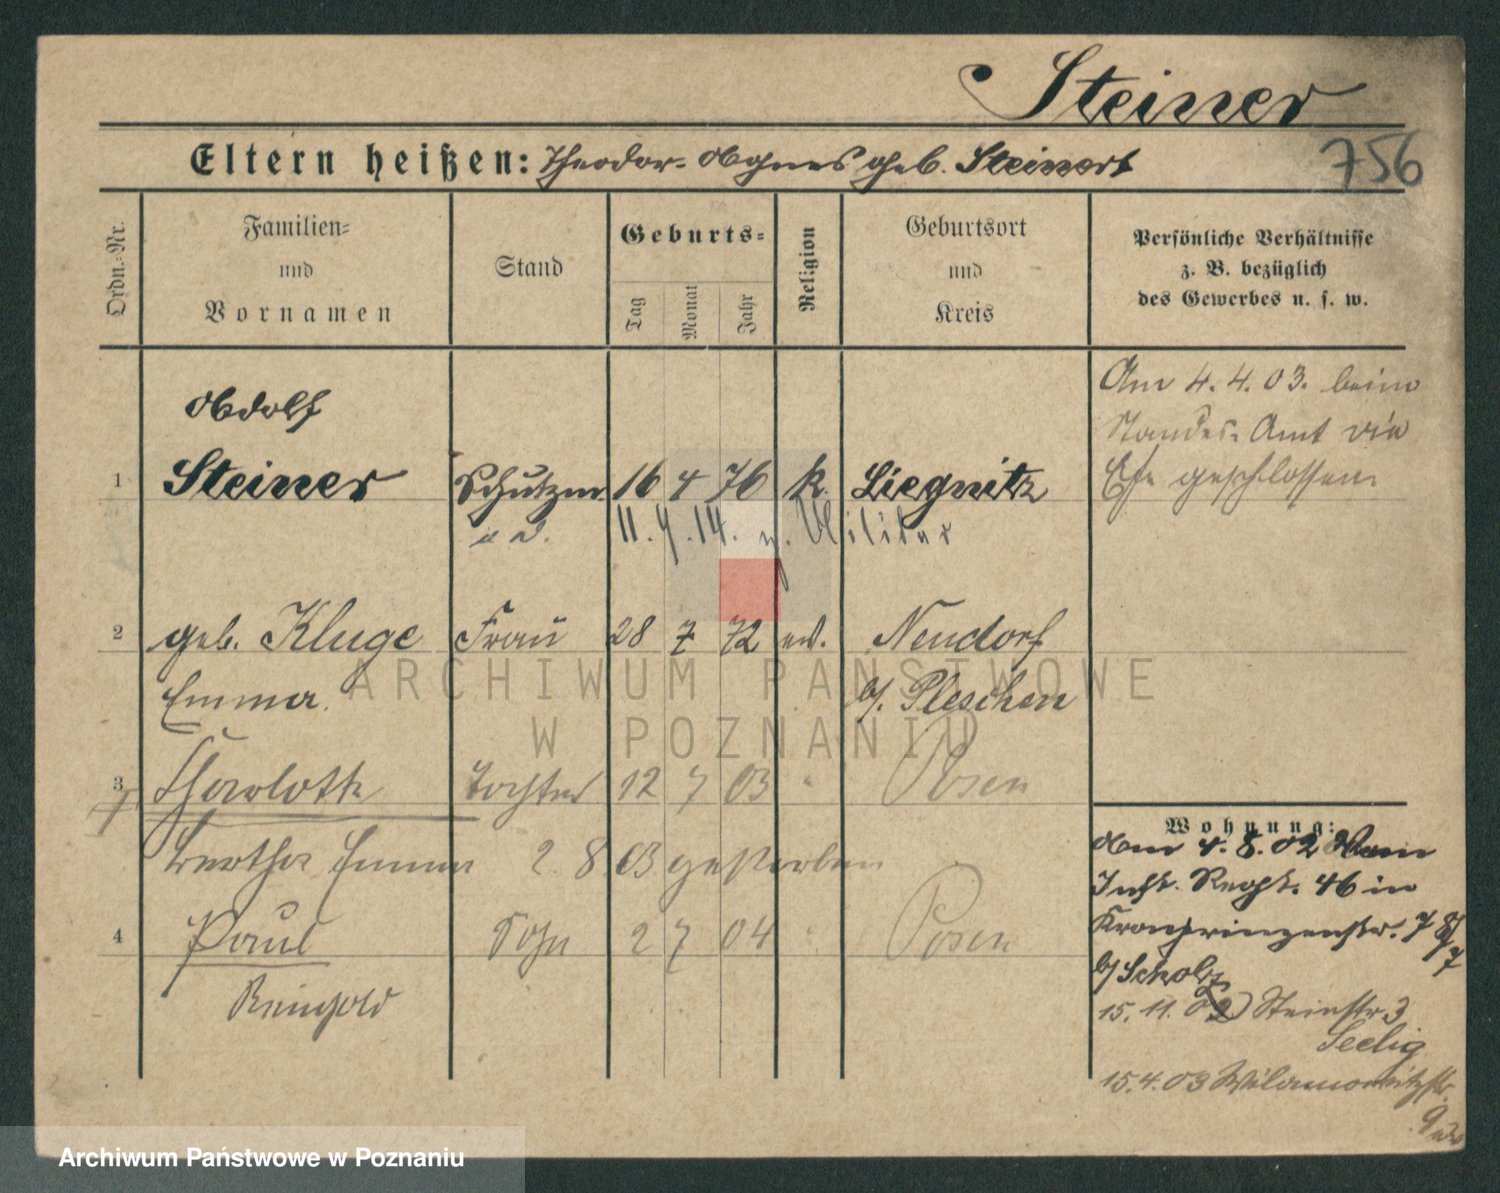 Steiner
756
Eltern heißen: Theodor - Agnes geb. Steinert
Ordn.-Nr.
Familien- und Vornamen
Stand
Geburts-
Tag
Monat
Jahr
Religion
Geburtsort und Kreis
Persönliche Verhältnisse
z. B. bezüglich
des Gewerbes u. s. w.
Am 4.4.03. beim
Standes-Amt die
Ehe geschlossen
Adolf
1 Steiner Schutzm. 16 4 76 k. Liegnitz
a. D. 11.4.14. z. Militär
2 geb. Kluge Frau 28 7 72 ev. Neudorf
Emma. b/. Pleschen
3 Charlotte Tochter 12 7 03 " Posen
Bertha Emma 2 8 03 gestorben
4 Paul Sohn 2 7 04 " Posen
Reinhold
Wohnung:
Am 4.8.02 vom
Inft. Regt. 46 in
Kronprinzenstr. 78
b/ Scholz
15.11.02 Steinstr 3
Seelig
15.4.03 Wilamowitzstr.
9
ARCHIWUM PAŃSTWOWE
W POZNANIU
Archiwum Państwowe w Poznaniu